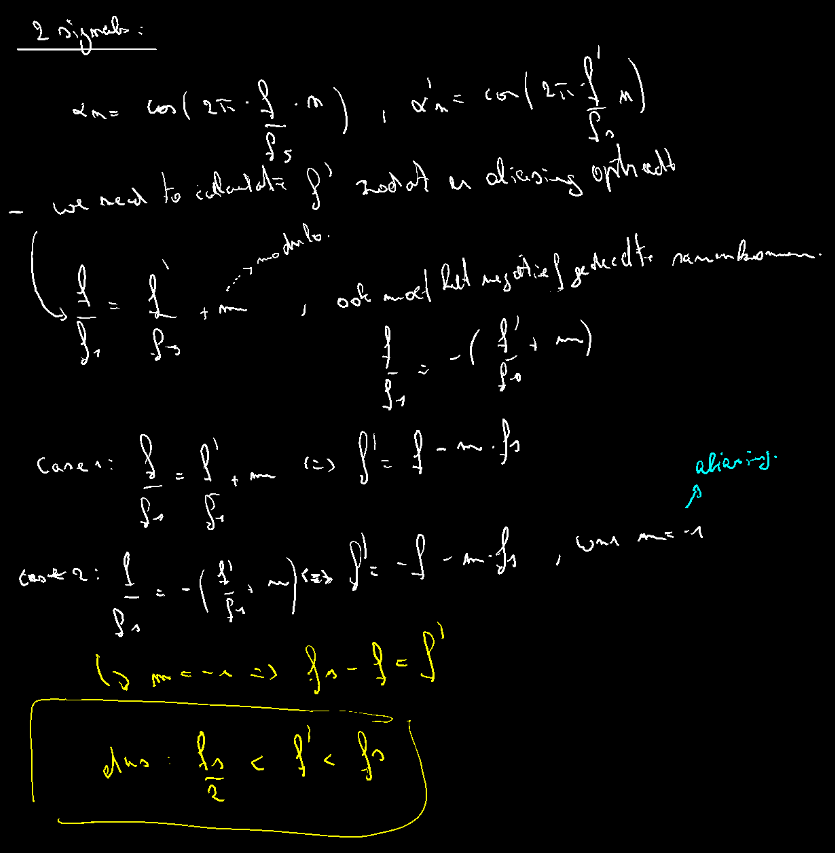 2 signals:
xn = cos(2π · f/fs · n), x'n = cos(2π · f'/fs n)
- we need to calculate f' zodat er aliasing optreedt
modulo.
f/fs = f'/fs + m , ook moet het negatief gedeelte samenkomen.
f/fs = -(f'/fs + m)
Case 1: f/fs = f'/fs + m <=> f' = f - m · fs
aliasing.
case 2: f/fs = -(f'/fs + m) <=> f' = -f - m · fs , m = -1
m = -1 => fs - f = f'
dus : fs/2 < f' < fs